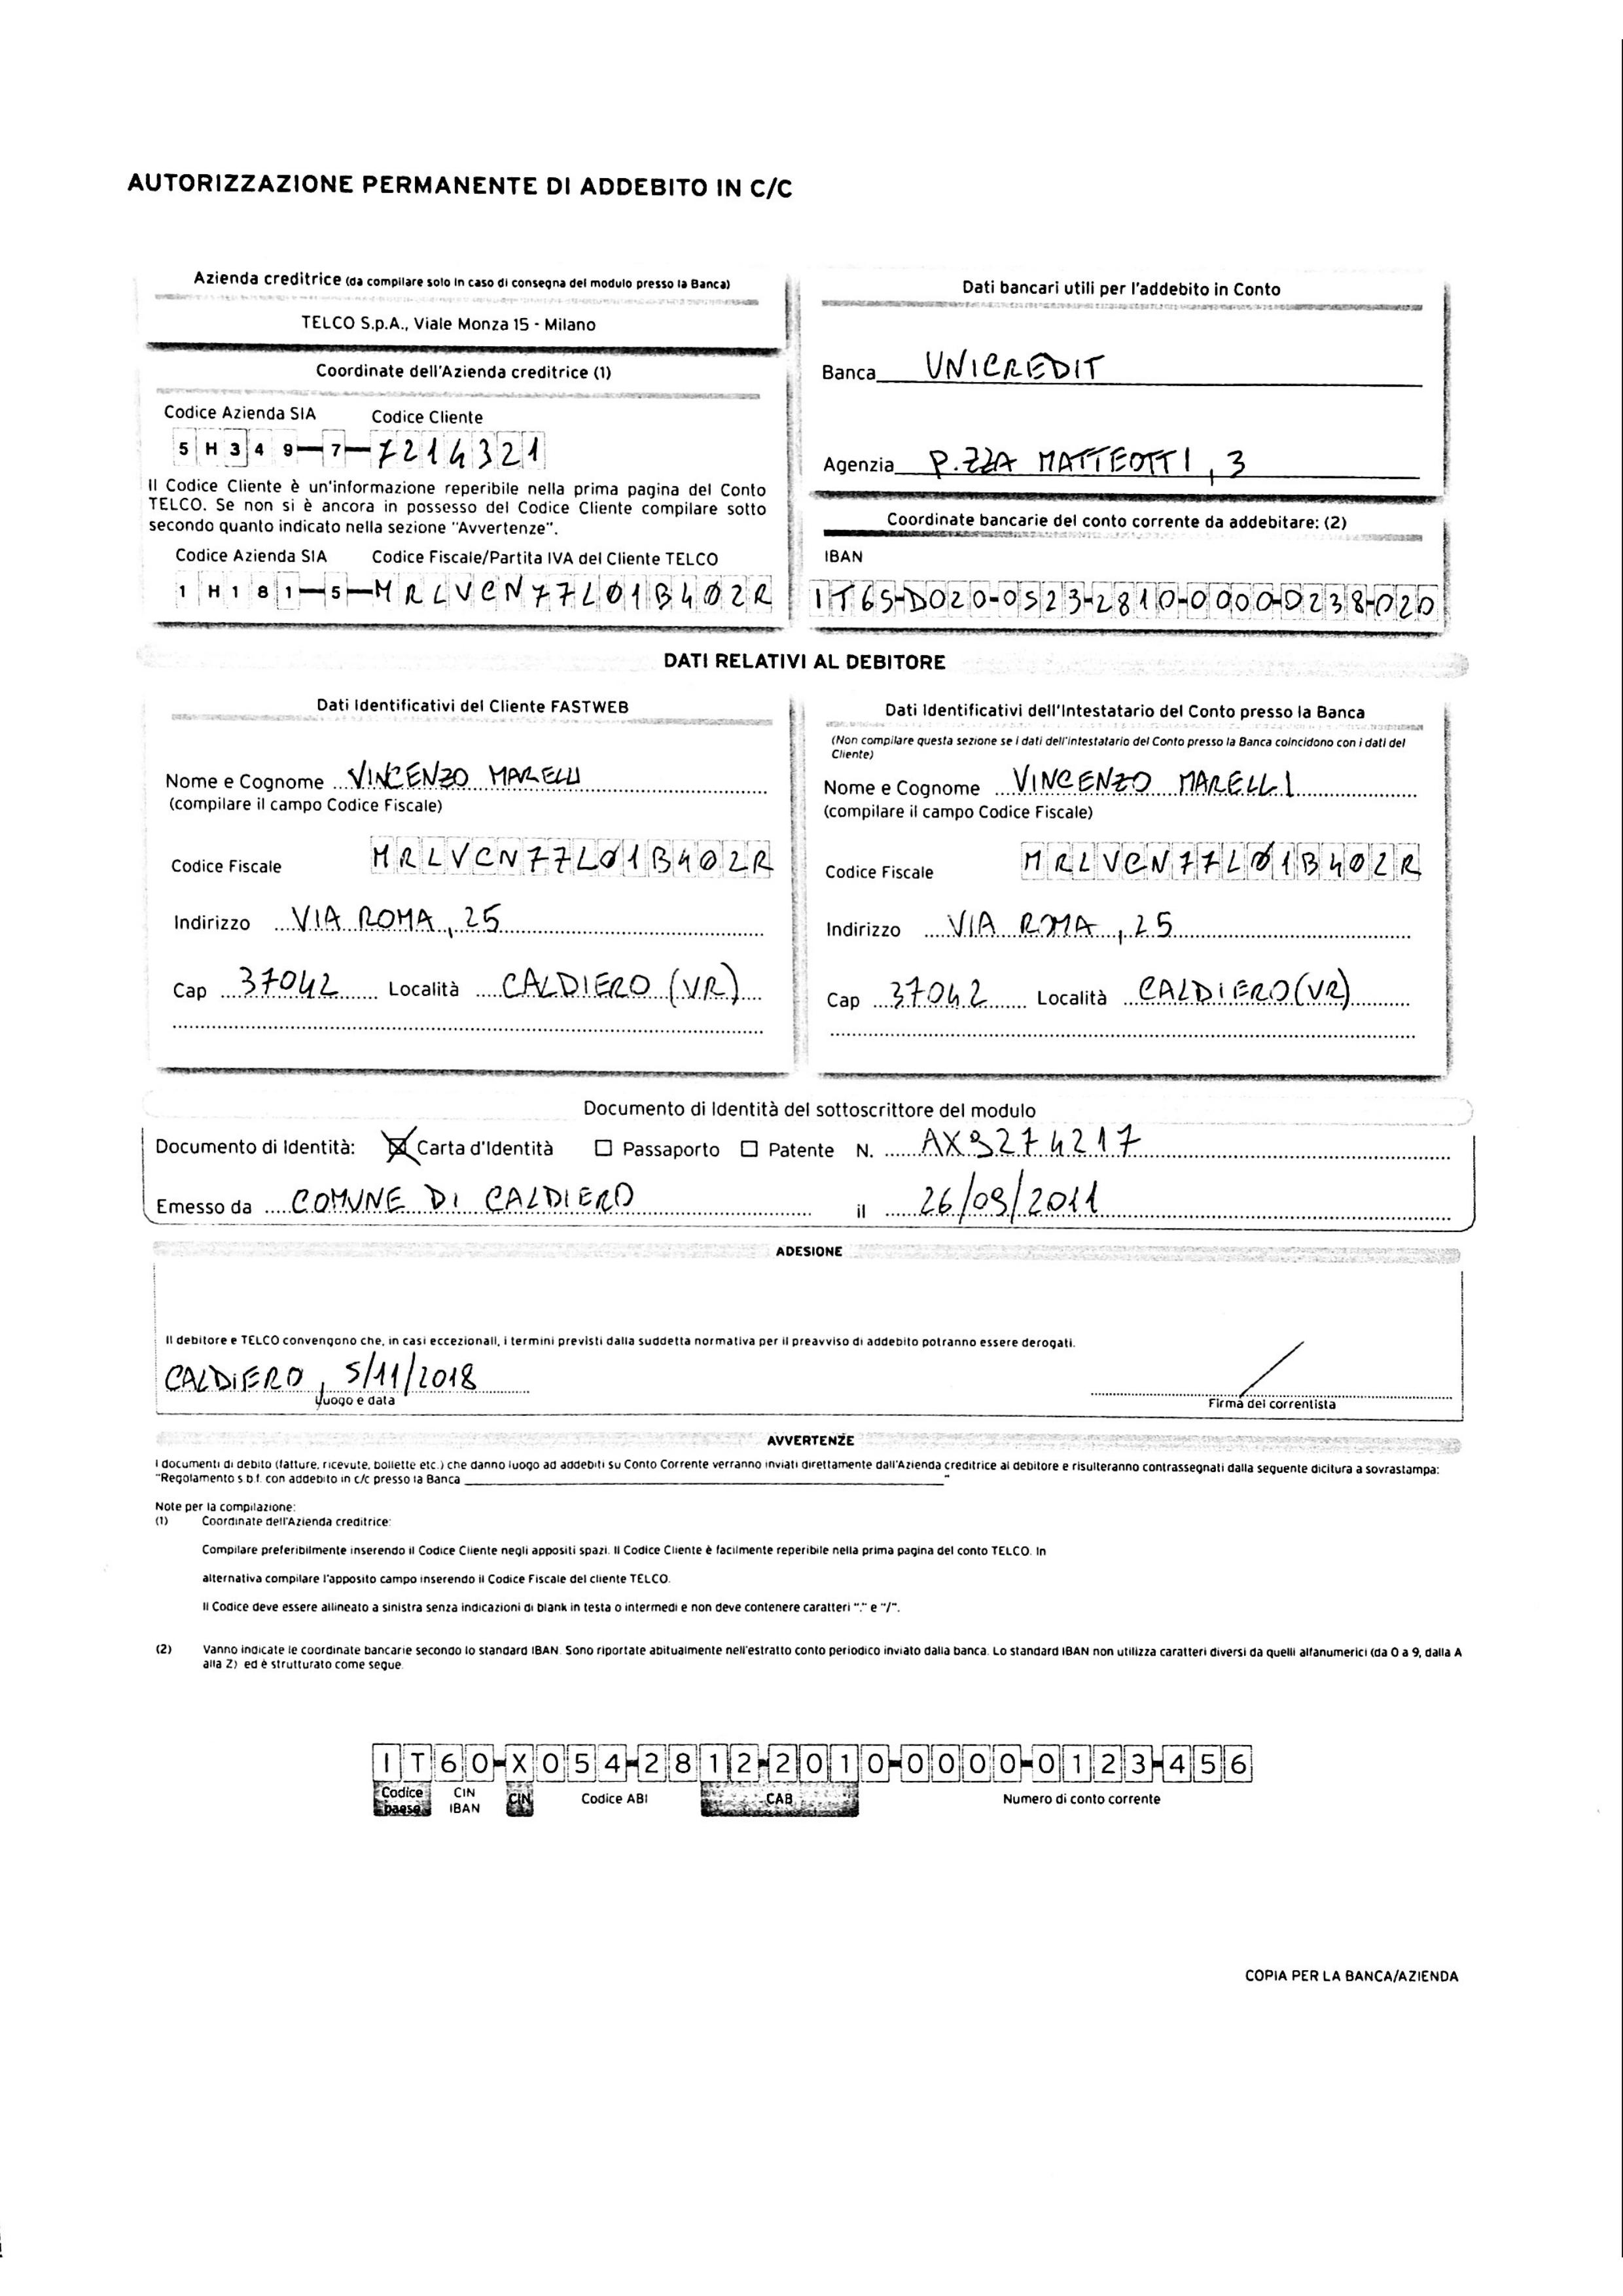 AUTORIZZAZIONE PERMANENTE DI ADDEBITO IN C/C
Azienda creditrice (da compilare solo in caso di consegna del modulo presso la Banca)
TELCO S.p.A., Viale Monza 15 - Milano
Coordinate dell'Azienda creditrice (1)
Codice Azienda SIA Codice Cliente
5 H 3 4 9 - 7 - 7214321
Il Codice Cliente è un'informazione reperibile nella prima pagina del Conto
TELCO. Se non si è ancora in possesso del Codice Cliente compilare sotto
secondo quanto indicato nella sezione "Avvertenze".
Codice Azienda SIA Codice Fiscale/Partita IVA del Cliente TELCO
1 H 1 8 1 - 5 - MRLVCN77L01B402R
Dati bancari utili per l'addebito in Conto
Banca UNICREDIT
Agenzia P.ZZA MATTEOTTI, 3
Coordinate bancarie del conto corrente da addebitare: (2)
IBAN
IT65-D020-0523-2810-0000-0238-020
DATI RELATIVI AL DEBITORE
Dati Identificativi del Cliente FASTWEB
Nome e Cognome VINCENZO MARELLI
(compilare il campo Codice Fiscale)
Codice Fiscale MRLVCN77L01B402R
Indirizzo VIA ROMA, 25
Cap 37042 Località CALDIERO (VR)
Dati Identificativi dell'Intestatario del Conto presso la Banca
(Non compilare questa sezione se i dati dell'intestatario del Conto presso la Banca coincidono con i dati del
Cliente)
Nome e Cognome VINCENZO MARELLI
(compilare il campo Codice Fiscale)
Codice Fiscale MRLVCN77L01B402R
Indirizzo VIA ROMA, 25
Cap 37042 Località CALDIERO (VR)
Documento di Identità del sottoscrittore del modulo
Documento di Identità: ☒ Carta d'Identità ☐ Passaporto ☐ Patente N. AX9274217
Emesso da COMUNE DI CALDIERO il 26/09/2011
ADESIONE
Il debitore e TELCO convengono che, in casi eccezionali, i termini previsti dalla suddetta normativa per il preavviso di addebito potranno essere derogati.
CALDIERO, 5/11/2018
Luogo e data Firma del correntista
AVVERTENZE
I documenti di debito (fatture, ricevute, bollette etc.) che danno luogo ad addebiti su Conto Corrente verranno inviati direttamente dall'Azienda creditrice al debitore e risulteranno contrassegnati dalla seguente dicitura a sovrastampa:
"Regolamento s.b.f. con addebito in c/c presso la Banca "
Note per la compilazione:
(1) Coordinate dell'Azienda creditrice:
Compilare preferibilmente inserendo il Codice Cliente negli appositi spazi. Il Codice Cliente è facilmente reperibile nella prima pagina del conto TELCO. In
alternativa compilare l'apposito campo inserendo il Codice Fiscale del cliente TELCO.
Il Codice deve essere allineato a sinistra senza indicazioni di blank in testa o intermedi e non deve contenere caratteri "." e "/".
(2) Vanno indicate le coordinate bancarie secondo lo standard IBAN. Sono riportate abitualmente nell'estratto conto periodico inviato dalla banca. Lo standard IBAN non utilizza caratteri diversi da quelli alfanumerici (da 0 a 9, dalla A
alla Z) ed è strutturato come segue
IT60-X054-2812-2010-0000-0123-456
Codice paese CIN IBAN CIN Codice ABI CAB Numero di conto corrente
COPIA PER LA BANCA/AZIENDA